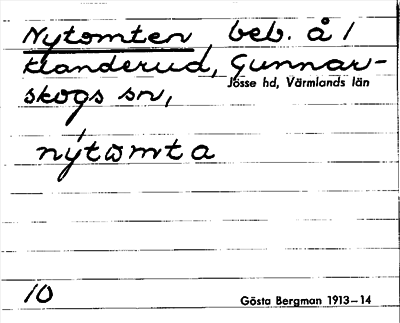 Nytomten, beb. å 1
Klanderud, Gunnar-
skogs sn,
Jösse hd, Värmlands län
nýtωmta
10
Gösta Bergman 1913–14